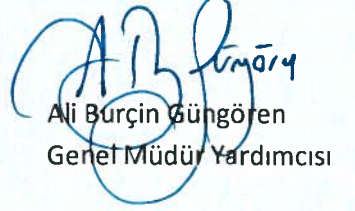 Ali Burçin Güngören
Genel Müdür Yardımcısı